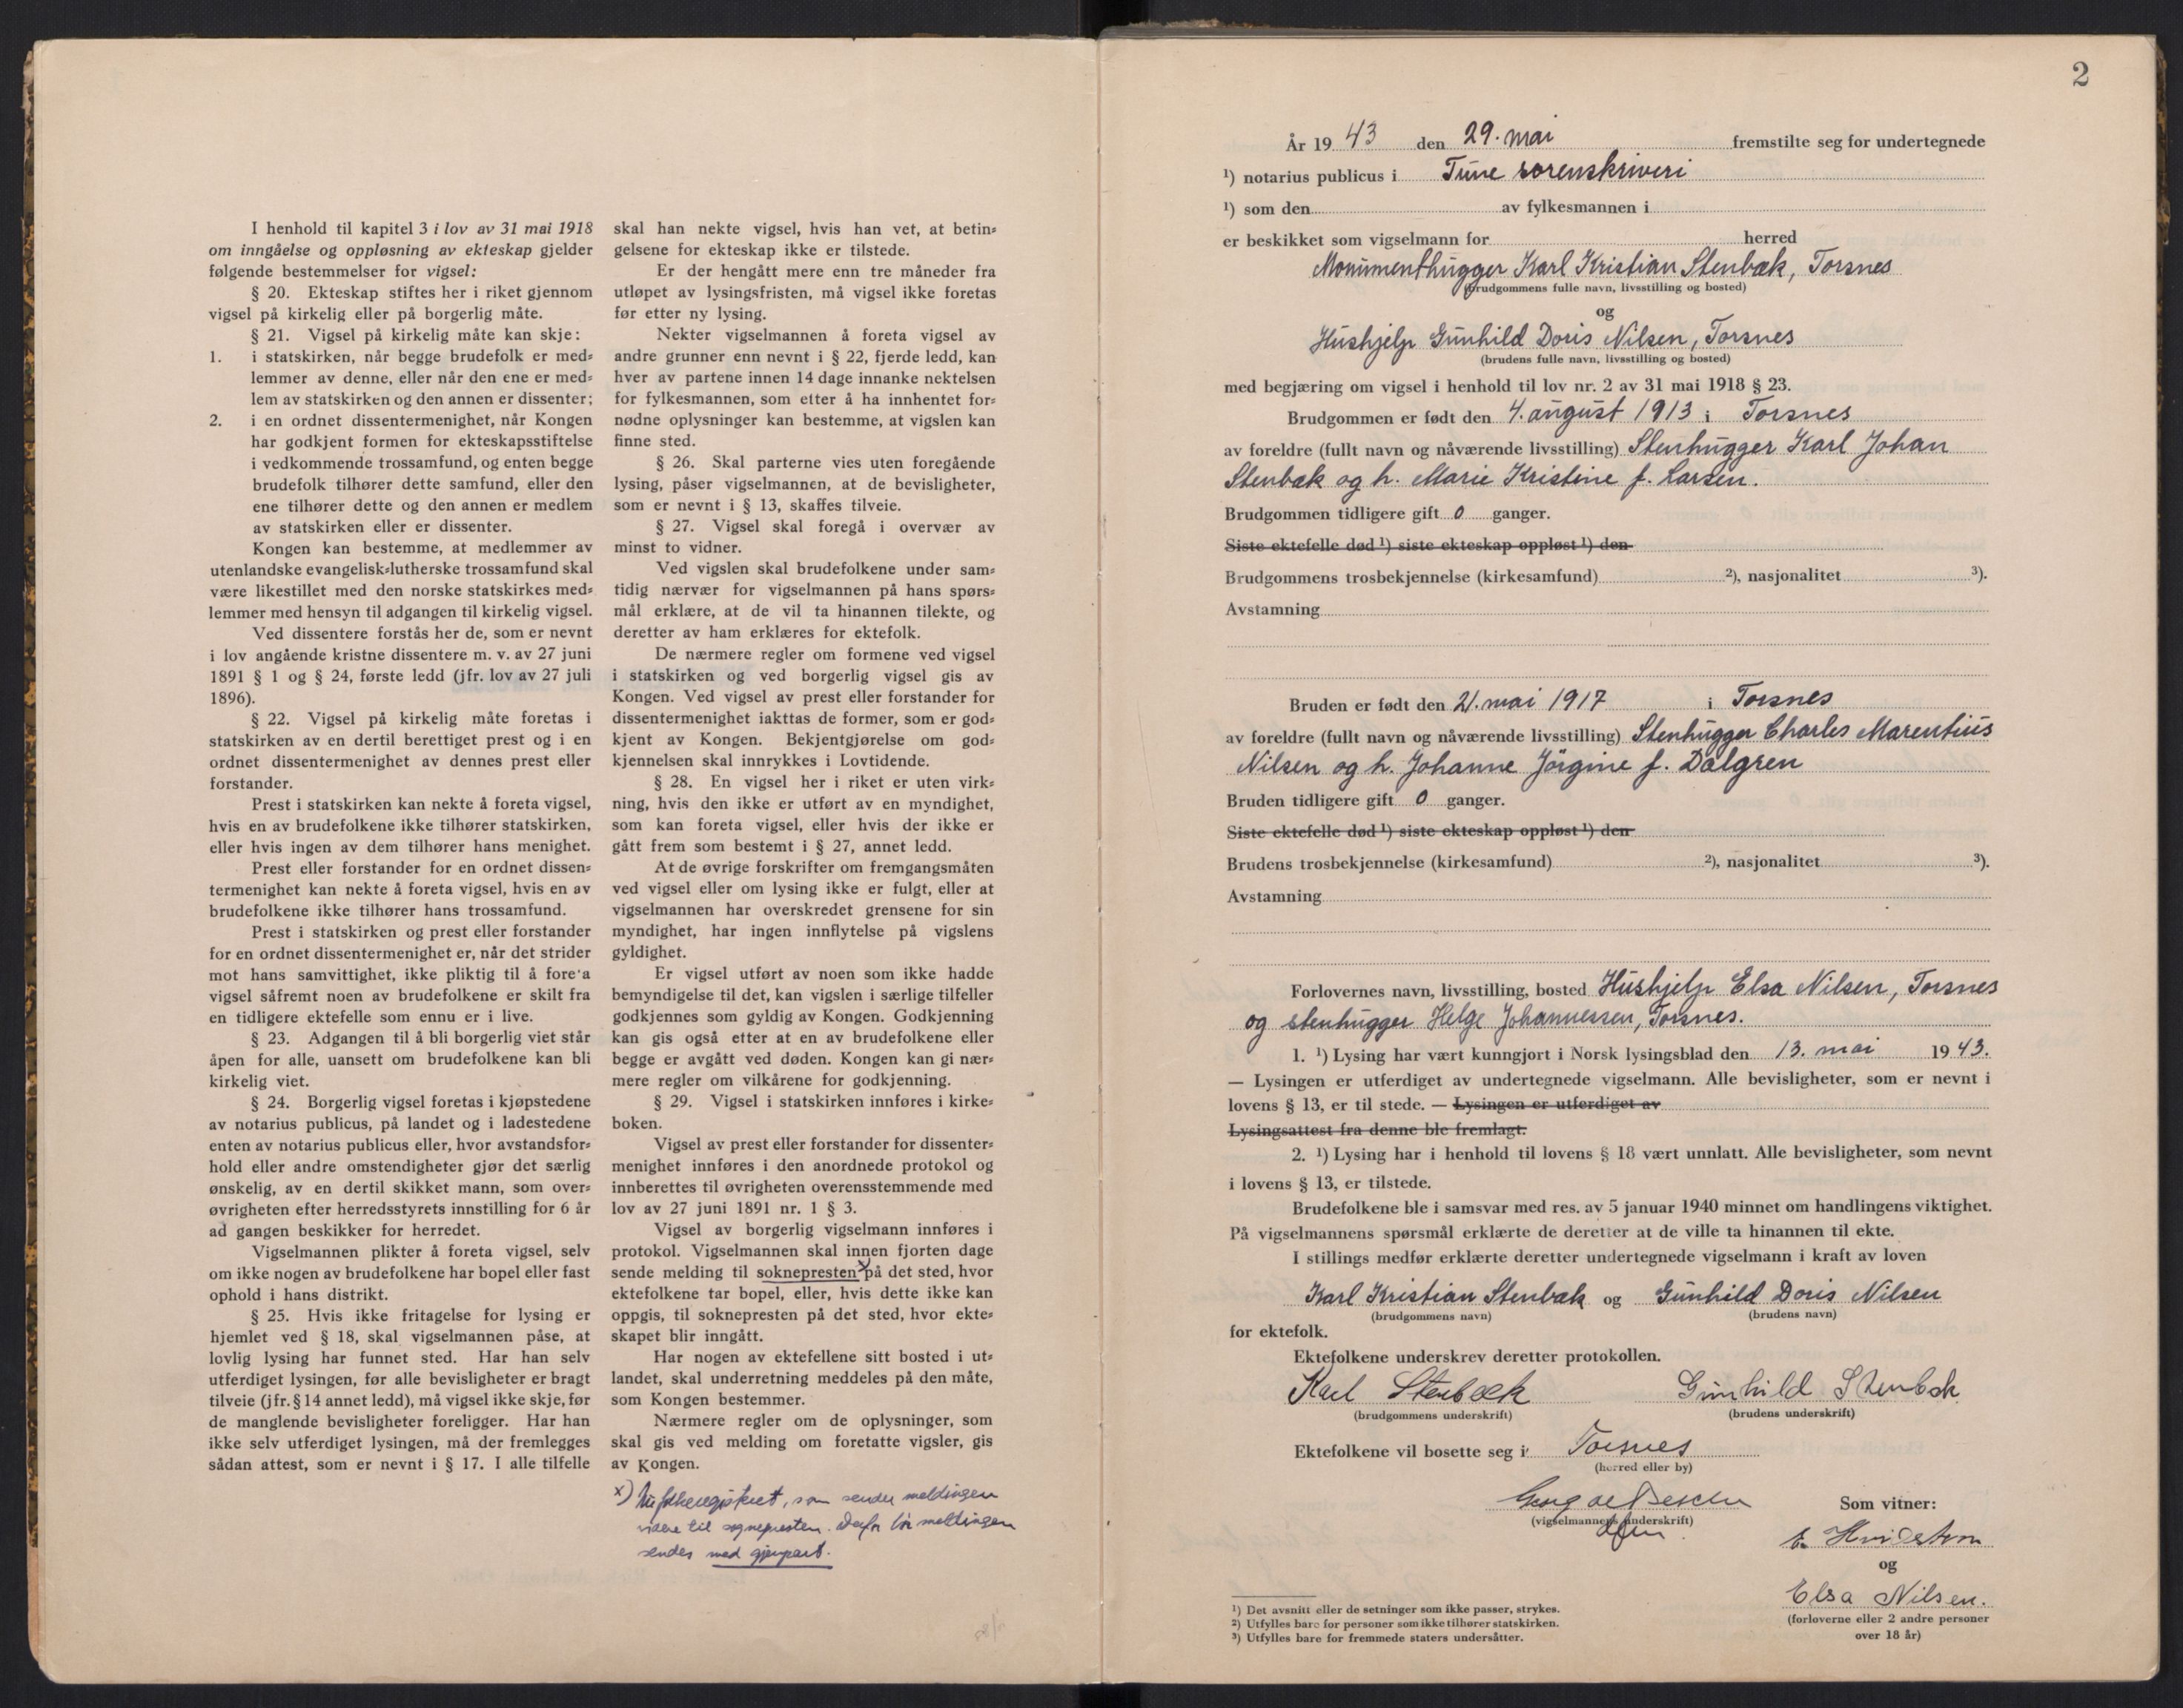 I henhold til kapitel 3 i lov av 31 mai 1918
om inngåelse og oppløsning av ekteskap gjelder
følgende bestemmelser for vigsel:
§ 20. Ekteskap stiftes her i riket gjennom
vigsel på kirkelig eller på borgerlig måte.
§ 21. Vigsel på kirkelig måte kan skje:
1. i statskirken, når begge brudefolk er med=
lemmer av denne, eller når den ene er med=
lem av statskirken og den annen er dissenter;
2. i en ordnet dissentermenighet, når Kongen
har godkjent formen for ekteskapsstiftelse
i vedkommende trossamfund, og enten begge
brudefolk tilhører dette samfund, eller den
ene tilhører dette og den annen er medlem
av statskirken eller er dissenter.
Kongen kan bestemme, at medlemmer av
utenlandske evangelisk=lutherske trossamfund skal
være likestillet med den norske statskirkes med=
lemmer med hensyn til adgangen til kirkelig vigsel.
Ved dissentere forstås her de, som er nevnt
i lov angående kristne dissentere m. v. av 27 juni
1891 § 1 og § 24, første ledd (jfr. lov av 27 juli
1896).
§ 22. Vigsel på kirkelig måte foretas i
statskirken av en dertil berettiget prest og i en
ordnet dissentermenighet av dennes prest eller
forstander.
Prest i statskirken kan nekte å foreta vigsel,
hvis en av brudefolkene ikke tilhører statskirken,
eller hvis ingen av dem tilhører hans menighet.
Prest eller forstander for en ordnet dissen=
termenighet kan nekte å foreta vigsel, hvis en av
brudefolkene ikke tilhører hans trossamfund.
Prest i statskirken og prest eller forstander
for en ordnet dissentermenighet er, når det strider
mot hans samvittighet, ikke pliktig til å foreta
vigsel såfremt noen av brudefolkene er skilt fra
en tidligere ektefelle som ennu er i live.
§ 23. Adgangen til å bli borgerlig viet står
åpen for alle, uansett om brudefolkene kan bli
kirkelig viet.
§ 24. Borgerlig vigsel foretas i kjøpstedene
av notarius publicus, på landet og i ladestedene
enten av notarius publicus eller, hvor avstandsfor=
hold eller andre omstendigheter gjør det særlig
ønskelig, av en dertil skikket mann, som over=
øvrigheten efter herredsstyrets innstilling for 6 år
ad gangen beskikker for herredet.
Vigselmannen plikter å foreta vigsel, selv
om ikke nogen av brudefolkene har bopel eller fast
ophold i hans distrikt.
§ 25. Hvis ikke fritagelse for lysing er
hjemlet ved § 18, skal vigselmannen påse, at
lovlig lysing har funnet sted. Har han selv
utferdiget lysingen, før alle bevisligheter er bragt
tilveie (jfr. § 14 annet ledd), må vigsel ikke skje, før
de manglende bevisligheter foreligger. Har han
ikke selv utferdiget lysingen, må der fremlegges
sådan attest, som er nevnt i § 17. I alle tilfelle
skal han nekte vigsel, hvis han vet, at betin=
gelsene for ekteskap ikke er tilstede.
Er der hengått mere enn tre måneder fra
utløpet av lysingsfristen, må vigsel ikke foretas
før etter ny lysing.
Nekter vigselmannen å foreta vigsel av
andre grunner enn nevnt i § 22, fjerde ledd, kan
hver av partene innen 14 dage innanke nektelsen
for fylkesmannen, som etter å ha innhentet for=
nødne oplysninger kan bestemme, at vigslen kan
finne sted.
§ 26. Skal parterne vies uten foregående
lysing, påser vigselmannen, at de bevisligheter,
som er nevnt i § 13, skaffes tilveie.
§ 27. Vigsel skal foregå i overvær av
minst to vidner.
Ved vigslen skal brudefolkene under sam=
tidig nærvær for vigselmannen på hans spørs=
mål erklære, at de vil ta hinannen tilekte, og
deretter av ham erklæres for ektefolk.
De nærmere regler om formene ved vigsel
i statskirken og ved borgerlig vigsel gis av
Kongen. Ved vigsel av prest eller forstander for
dissentermenighet iakttas de former, som er god=
kjent av Kongen. Bekjentgjørelse om god=
kjennelsen skal innrykkes i Lovtidende.
§ 28. En vigsel her i riket er uten virk=
ning, hvis den ikke er utført av en myndighet,
som kan foreta vigsel, eller hvis der ikke er
gått frem som bestemt i § 27, annet ledd.
At de øvrige forskrifter om fremgangsmåten
ved vigsel eller om lysing ikke er fulgt, eller at
vigselmannen har overskredet grensene for sin
myndighet, har ingen innflytelse på vigslens
gyldighet.
Er vigsel utført av noen som ikke hadde
bemyndigelse til det, kan vigslen i særlige tilfeller
godkjennes som gyldig av Kongen. Godkjenning
kan gis også etter at en av brudefolkene eller
begge er avgått ved døden. Kongen kan gi nær=
mere regler om vilkårene for godkjenning.
§ 29. Vigsel i statskirken innføres i kirke=
boken.
Vigsel av prest eller forstander for dissenter=
menighet innføres i den anordnede protokol og
innberettes til øvrigheten overensstemmende med
lov av 27 juni 1891 nr. 1 § 3.
Vigsel av borgerlig vigselmann innføres i
protokol. Vigselmannen skal innen fjorten dage
sende melding til soknepresten x på det sted, hvor
ektefolkene tar bopel, eller, hvis dette ikke kan
oppgis, til soknepresten på det sted, hvor ekte=
skapet blir inngått.
Har nogen av ektefellene sitt bosted i ut=
landet, skal underretning meddeles på den måte,
som Kongen bestemmer.
Nærmere regler om de oplysninger, som
skal gis ved melding om foretatte vigsler, gis
av Kongen.
x) som sender meldingen
videre til sognepresten. Derfor bør meldingen
sendes med gjenpart.
2
År 1943 den 29. mai fremstilte seg for undertegnede
¹) notarius publicus i Tune sorenskriveri
¹) som den av fylkesmannen i
er beskikket som vigselmann for herred
Monumenthugger Karl Kristian Stenbæk, Torsnes
(brudgommens fulle navn, livsstilling og bosted)
og
Hushjelp Gunhild Doris Nilsen, Torsnes
(brudens fulle navn, livsstilling og bosted)
med begjæring om vigsel i henhold til lov nr. 2 av 31 mai 1918 § 23.
Brudgommen er født den 4. august 1913 i Torsnes
av foreldre (fullt navn og nåværende livsstilling) Stenhugger Karl Johan
Stenbæk og h. Marie Kristine f. Larsen.
Brudgommen tidligere gift 0 ganger.
Siste ektefelle død ¹) siste ekteskap oppløst ¹) den
Brudgommens trosbekjennelse (kirkesamfund) ²), nasjonalitet ³).
Avstamning
Bruden er født den 21. mai 1917 i Torsnes
av foreldre (fullt navn og nåværende livsstilling) Stenhugger Charles Marentius
Nilsen og h. Johanne Jörgine f. Dalgren
Bruden tidligere gift 0 ganger.
Siste ektefelle død ¹) siste ekteskap oppløst ¹) den
Brudens trosbekjennelse (kirkesamfund) ²), nasjonalitet ³).
Avstamning
Forlovernes navn, livsstilling, bosted Hushjelp Elsa Nilsen, Torsnes
og stenhugger Helge Johannessen, Torsnes.
1. ¹) Lysing har vært kunngjort i Norsk lysingsblad den 13. mai 1943.
— Lysingen er utferdiget av undertegnede vigselmann. Alle bevisligheter, som er nevnt i
lovens § 13, er til stede. — Lysingen er utferdiget av
Lysingsattest fra denne ble fremlagt.
2. ¹) Lysing har i henhold til lovens § 18 vært unnlatt. Alle bevisligheter, som nevnt
i lovens § 13, er tilstede.
Brudefolkene ble i samsvar med res. av 5 januar 1940 minnet om handlingens viktighet.
På vigselmannens spørsmål erklærte de deretter at de ville ta hinannen til ekte.
I stillings medfør erklærte deretter undertegnede vigselmann i kraft av loven
Karl Kristian Stenbæk og Gunhild Doris Nilsen
(brudgommens navn) (brudens navn)
for ektefolk.
Ektefolkene underskrev deretter protokollen.
Karl Stenbæk Gunhild Stenbæk
(brudgommens underskrift) (brudens underskrift)
Ektefolkene vil bosette seg i Torsnes
(herred eller by)
Georg
(vigselmannens underskrift)
Som vitner:
E.
og
Elsa Nilsen.
(forloverne eller 2 andre personer
over 18 år)
¹) Det avsnitt eller de setninger som ikke passer, strykes.
²) Utfylles bare for personer som ikke tilhører statskirken.
³) Utfylles bare for fremmede staters undersåtter.